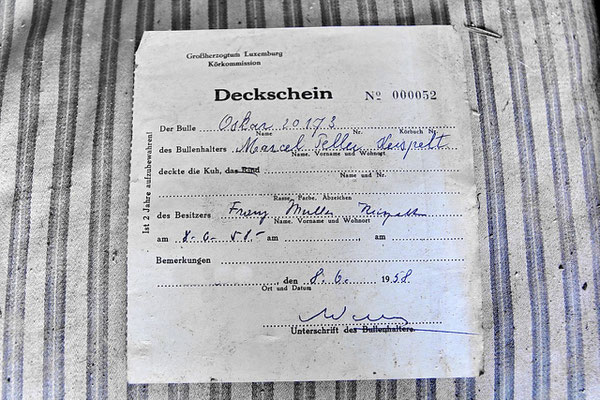 Großherzogtum Luxemburg
Körkommission
Deckschein Nº 000052
Der Bulle Oskar 20173
Name Nr. Körbuch Nr.
des Bullenhalters Marcel
Name, Vorname und Wohnort
deckte die Kuh, das Rind
Name und Nr.
Rasse, Farbe, Abzeichen
des Besitzers Franz Muller
Name, Vorname und Wohnort
am 8.6.58.- am , am
Bemerkungen
, den 8.6. 1958
Ort und Datum
Unterschrift des Bullenhalters.
Ist 2 Jahre aufzubewahren!